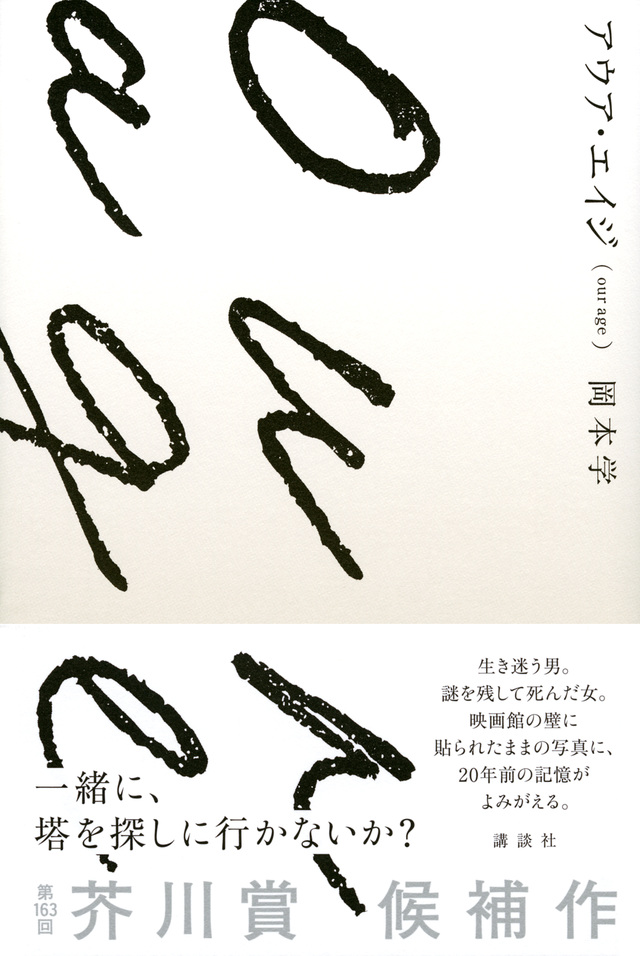 アウア・エイジ
(our age)
岡本学
Our
age
生き迷う男。
謎を残して死んだ女。
映画館の壁に
貼られたままの写真に、
20年前の記憶が
よみがえる。
講談社
一緒に、
塔を探しに行かないか?
第163回
芥川賞 候補作